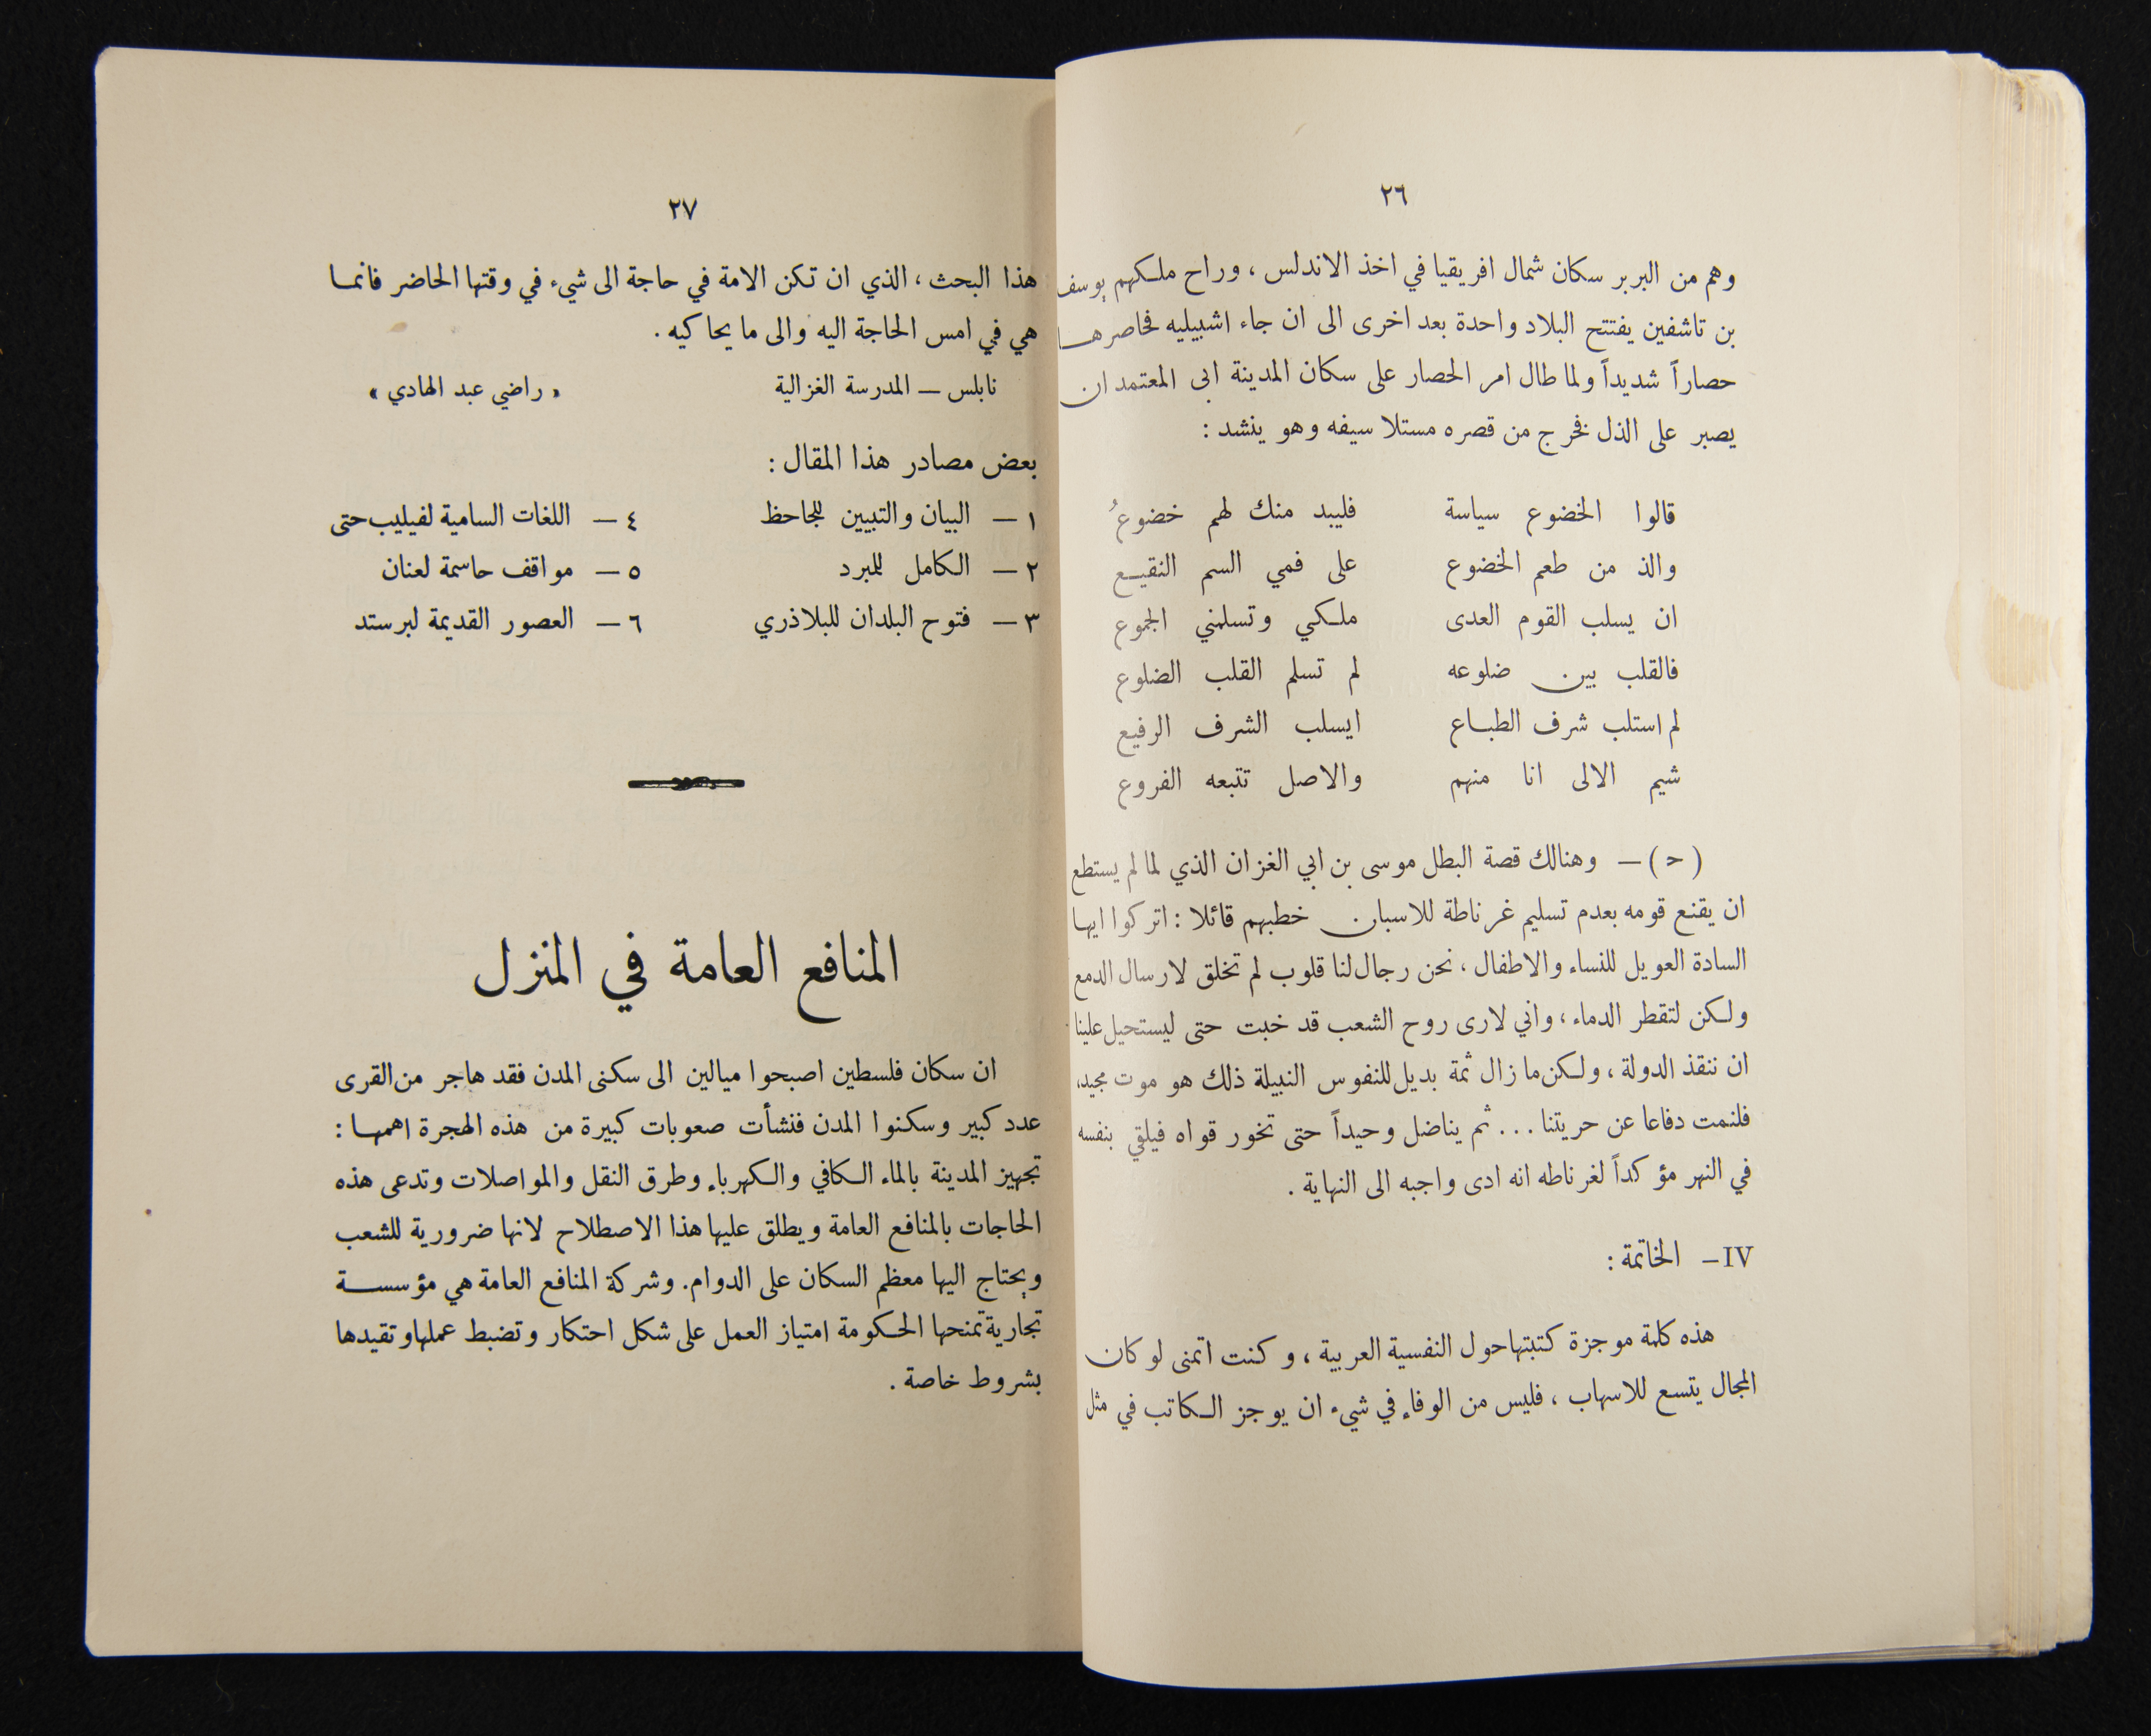 ٢٦
وهم من البربر سكان شمال افريقيا في اخذ الاندلس ، وراح ملكهم يوسف
بن تاشفين يفتتح البلاد واحدة بعد اخرى الى ان جاء اشبيليه فحاصرها
حصاراً شديداً ولما طال امر الحصار على سكان المدينة ابى المعتمد ان
يصبر على الذل فخرج من قصره مستلا سيفه وهو ينشد :
قالوا الخضوع سياسة فليبد منك لهم خضوعُ
والذ من طعم الخضوع على فمي السم النقيع
ان يسلب القوم العدى ملكي وتسلمني الجموع
فالقلب بين ضلوعه لم تسلم القلب الضلوع
لم استلب شرف الطباع ايسلب الشرف الرفيع
شيم الالى انا منهم والاصل تتبعه الفروع
(ح) – وهنالك قصة البطل موسى بن ابي الغزان الذي لما لم يستطع
ان يقنع قومه بعدم تسليم غرناطة للاسبان خطبهم قائلا : اتركوا ايها
السادة العويل للنساء والاطفال ، نحن رجال لنا قلوب لم تخلق لارسال الدمع
ولكن لتقطر الدماء ، واني لارى روح الشعب قد خبت حتى ليستحيل علينا
ان ننقذ الدولة ، ولكن ما زال ثمة بديل للنفوس النبيلة ذلك هو موت مجيد،
فلنمت دفاعا عن حريتنا ... ثم يناضل وحيداً حتى تخور قواه فيلقي بنفسه
في النهر مؤكداً لغرناطه انه ادى واجبه الى النهاية .
IV – الخاتمة :
هذه كلمة موجزة كتبتها حول النفسية العربية ، وكنت اتمنى لو كان
المجال يتسع للاسهاب ، فليس من الوفاء في شيء ان يوجز الكاتب في مثل
٢٧
هذا البحث ، الذي ان تكن الامة في حاجة الى شيء في وقتها الحاضر فانما
هي في امس الحاجة اليه والى ما يحاكيه .
نابلس – المدرسة الغزالية « راضي عبد الهادي »
بعض مصادر هذا المقال :
١ – البيان والتبيين للجاحظ ٤ – اللغات السامية لفيليب حتى
٢ – الكامل للمبرد ٥ – مواقف حاسمة لعنان
٣ – فتوح البلدان للبلاذري ٦ – العصور القديمة لبرستد
المنافع العامة في المنزل
ان سكان فلسطين اصبحوا ميالين الى سكنى المدن فقد هاجر من القرى
عدد كبير وسكنوا المدن فنشأت صعوبات كبيرة من هذه الهجرة اهمها :
تجهيز المدينة بالماء الكافي والكهرباء وطرق النقل والمواصلات وتدعى هذه
الحاجات بالمنافع العامة ويطلق عليها هذا الاصطلاح لانها ضرورية للشعب
ويحتاج اليها معظم السكان على الدوام. وشركة المنافع العامة هي مؤسسة
تجارية تمنحها الحكومة امتياز العمل على شكل احتكار وتضبط عملها وتقيدها
بشروط خاصة .